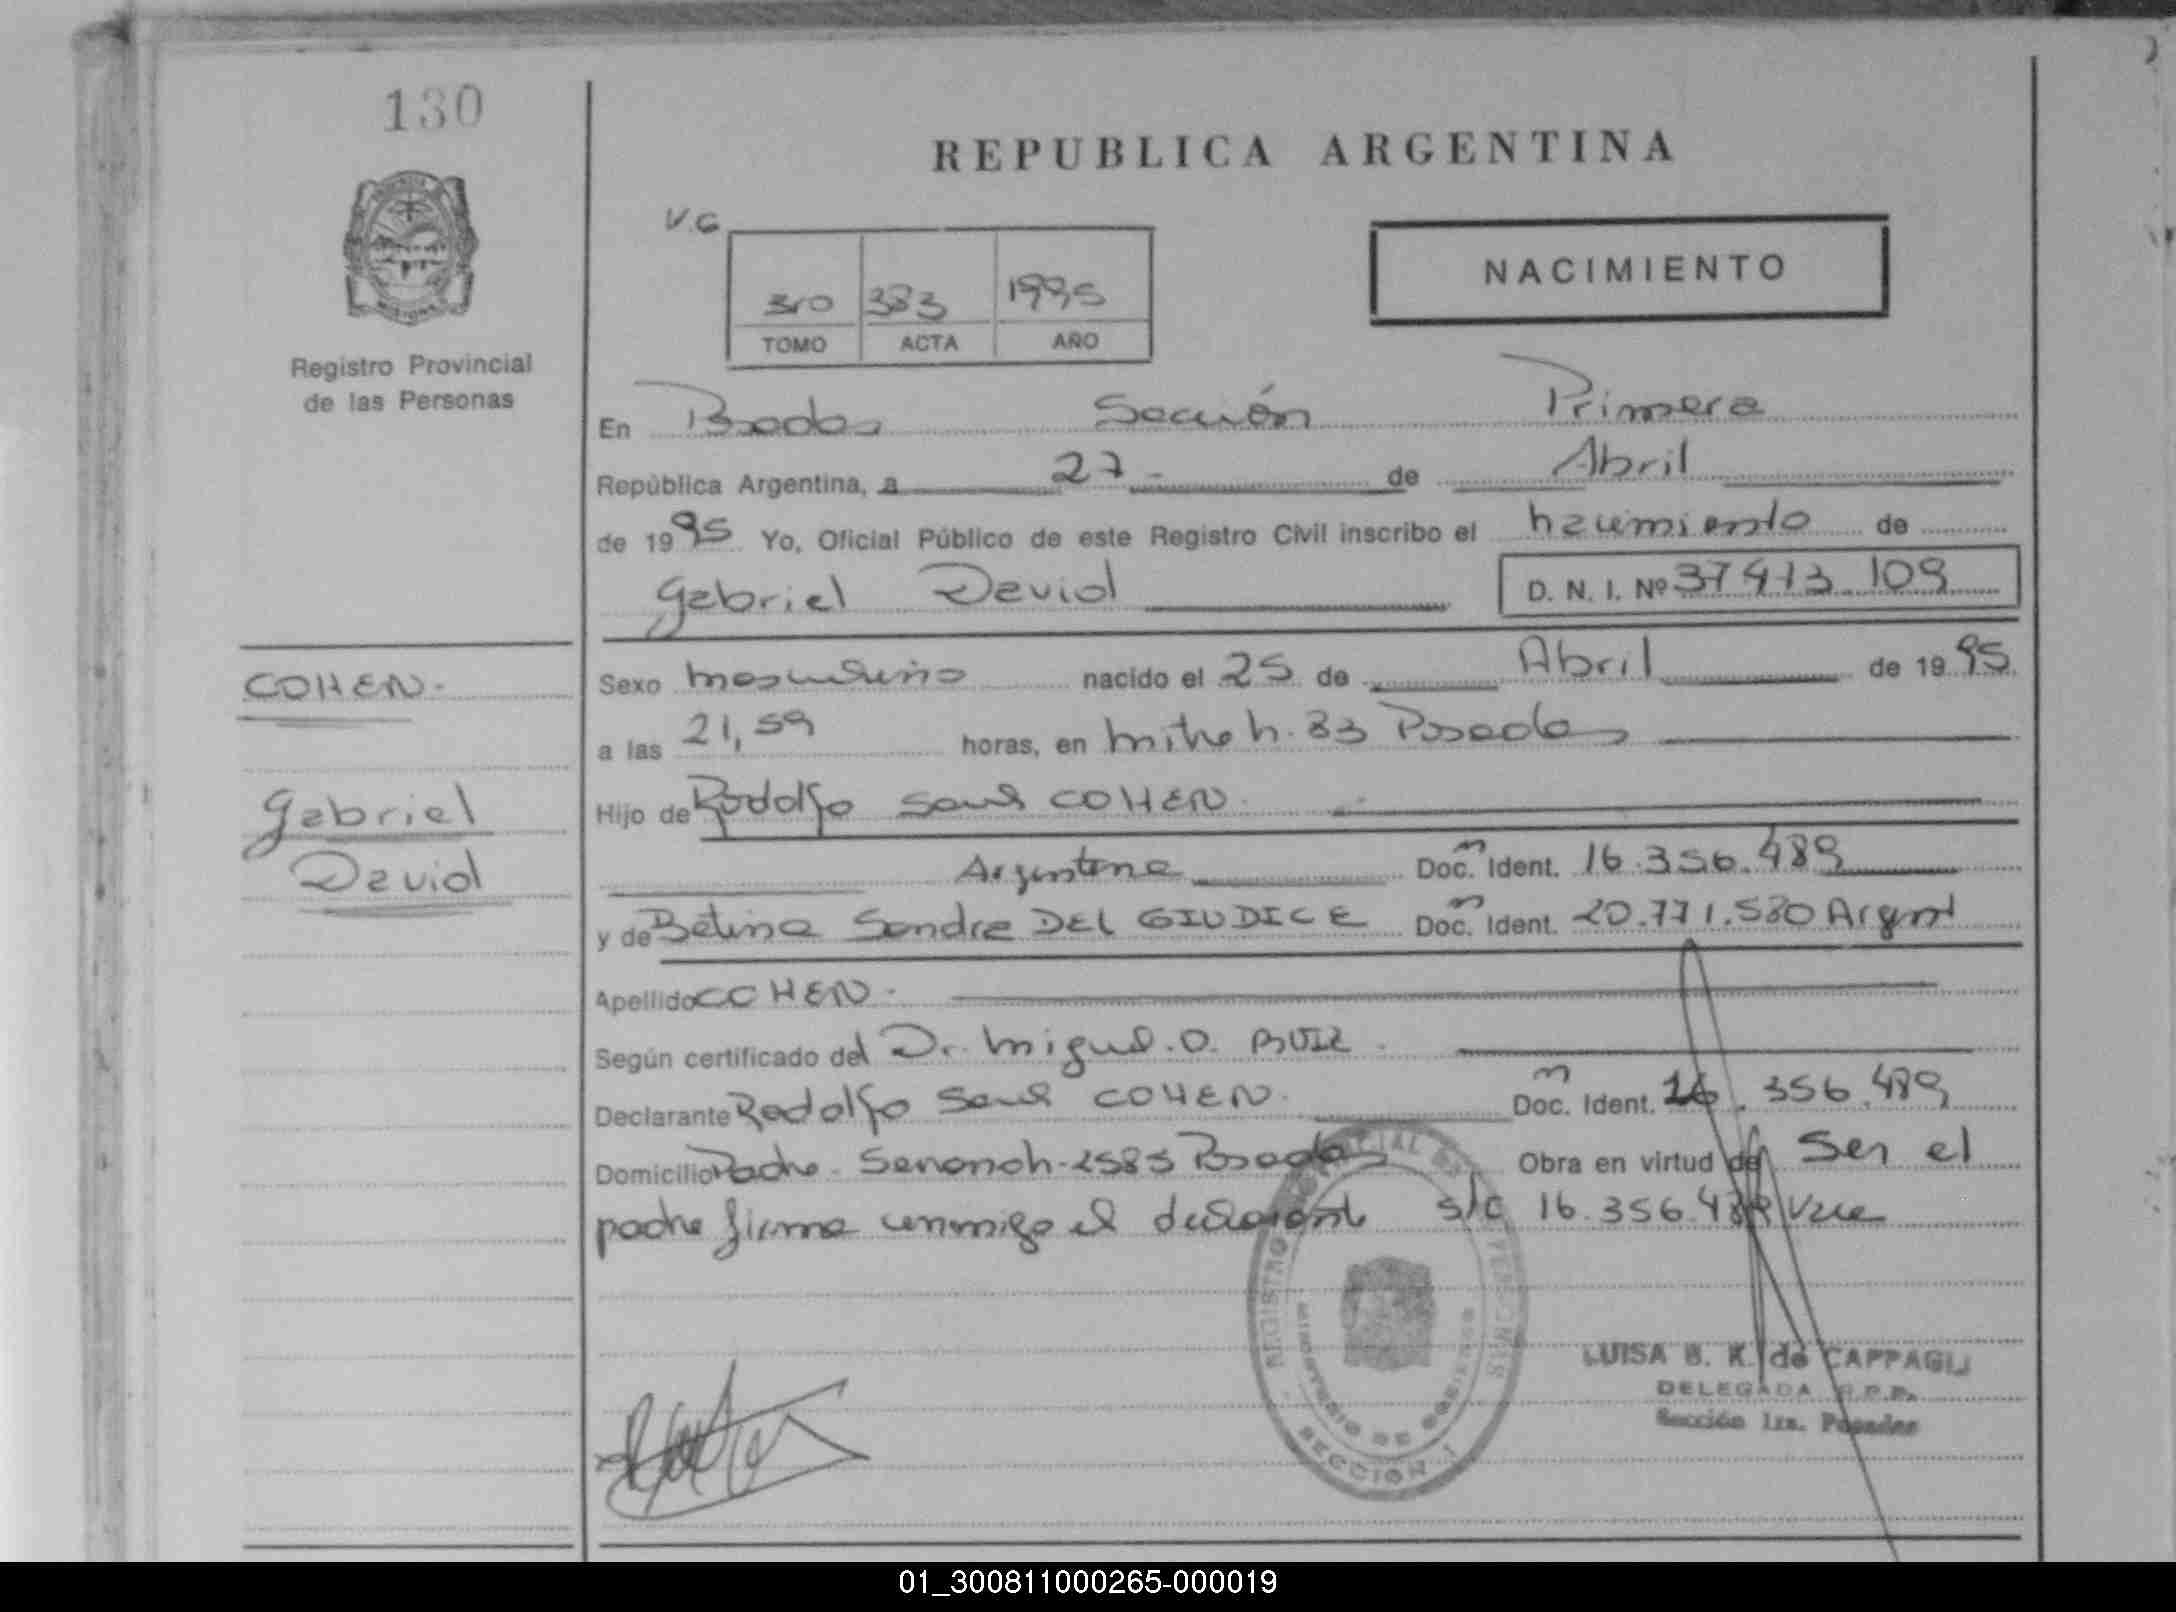 130
REPUBLICA ARGENTINA
V.G
NACIMIENTO
3ro 383 1995
TOMO ACTA AÑO
Registro Provincial
de las Personas
En Posadas Sección Primera
República Argentina, a 27 - de Abril
de 1995 Yo, Oficial Público de este Registro Civil inscribo el nacimiento de
Gabriel David D. N. I. Nº 37413.109
COHEN.
Gabriel
David
Sexo masculino nacido el 25 de Abril de 1995.
a las 21,59 horas, en Mitre n. 83 Posadas
Hijo de Rodolfo Saul COHEN.
Argentina Doc. Ident. 16.356.489
y de Betina Sandra DEL GIUDICE Doc. Ident. 20.771.580 Argent
Apellido COHEN.
Según certificado del Dr. Miguel. O. RUIZ.
Declarante Rodolfo Saul COHEN. Doc. Ident. 16.356.489
Domicilio Padre. 2585 Posadas Obra en virtud de Ser el
padre firma conmigo el declarante s/c 16.356.489 Vale
REGISTRO PROVINCIAL DE LAS PERSONAS
MINISTERIO DE GOBIERNO
SECCION 1
LUISA B. K. de CAPPAGLI
DELEGADA R.P.P.
Sección 1ra. Posadas
01_300811000265-000019